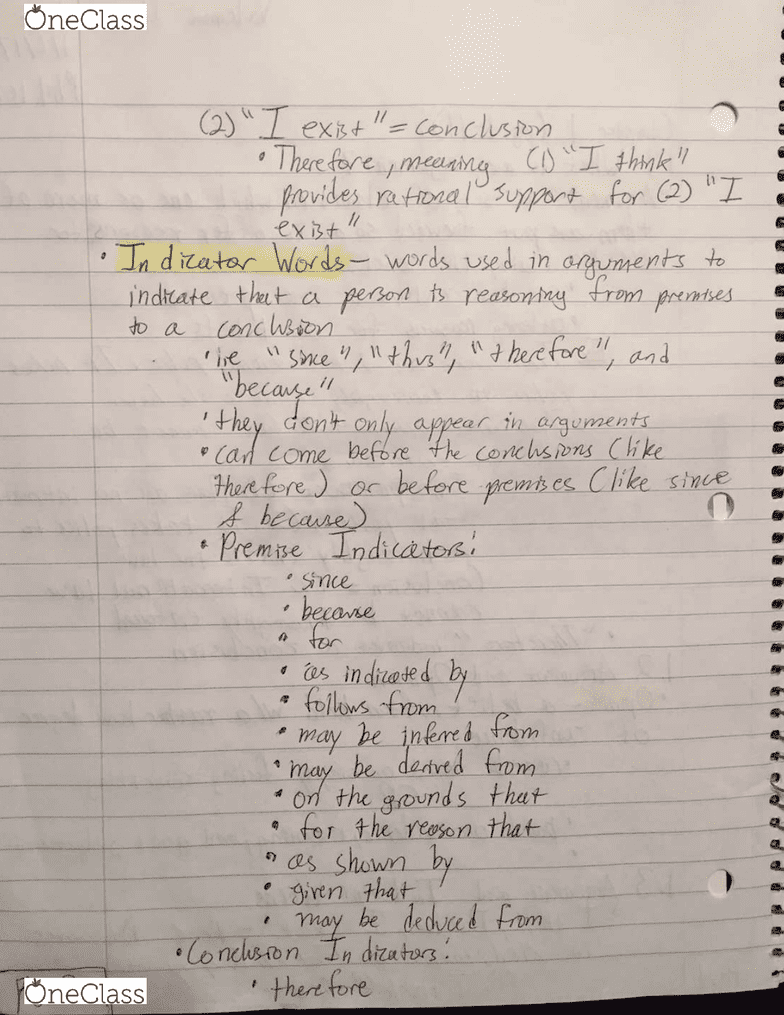 OneClass
(2) "I exist" = conclusion
• Therefore, meaning (1) "I think"
provides rational support for (2) "I
exist"
• Indicator Words - words used in arguments to
indicate that a person is reasoning from premises
to a conclusion
• ie "since", "thus", "therefore", and
"because"
• they don't only appear in arguments
• can come before the conclusions (like
therefore) or before premises (like since
& because)
• Premise Indicators:
• since
• because
• for
• as indicated by
• follows from
• may be inferred from
• may be derived from
• on the grounds that
• for the reason that
• as shown by
• given that
• may be deduced from
• Conclusion Indicators:
• therefore
OneClass